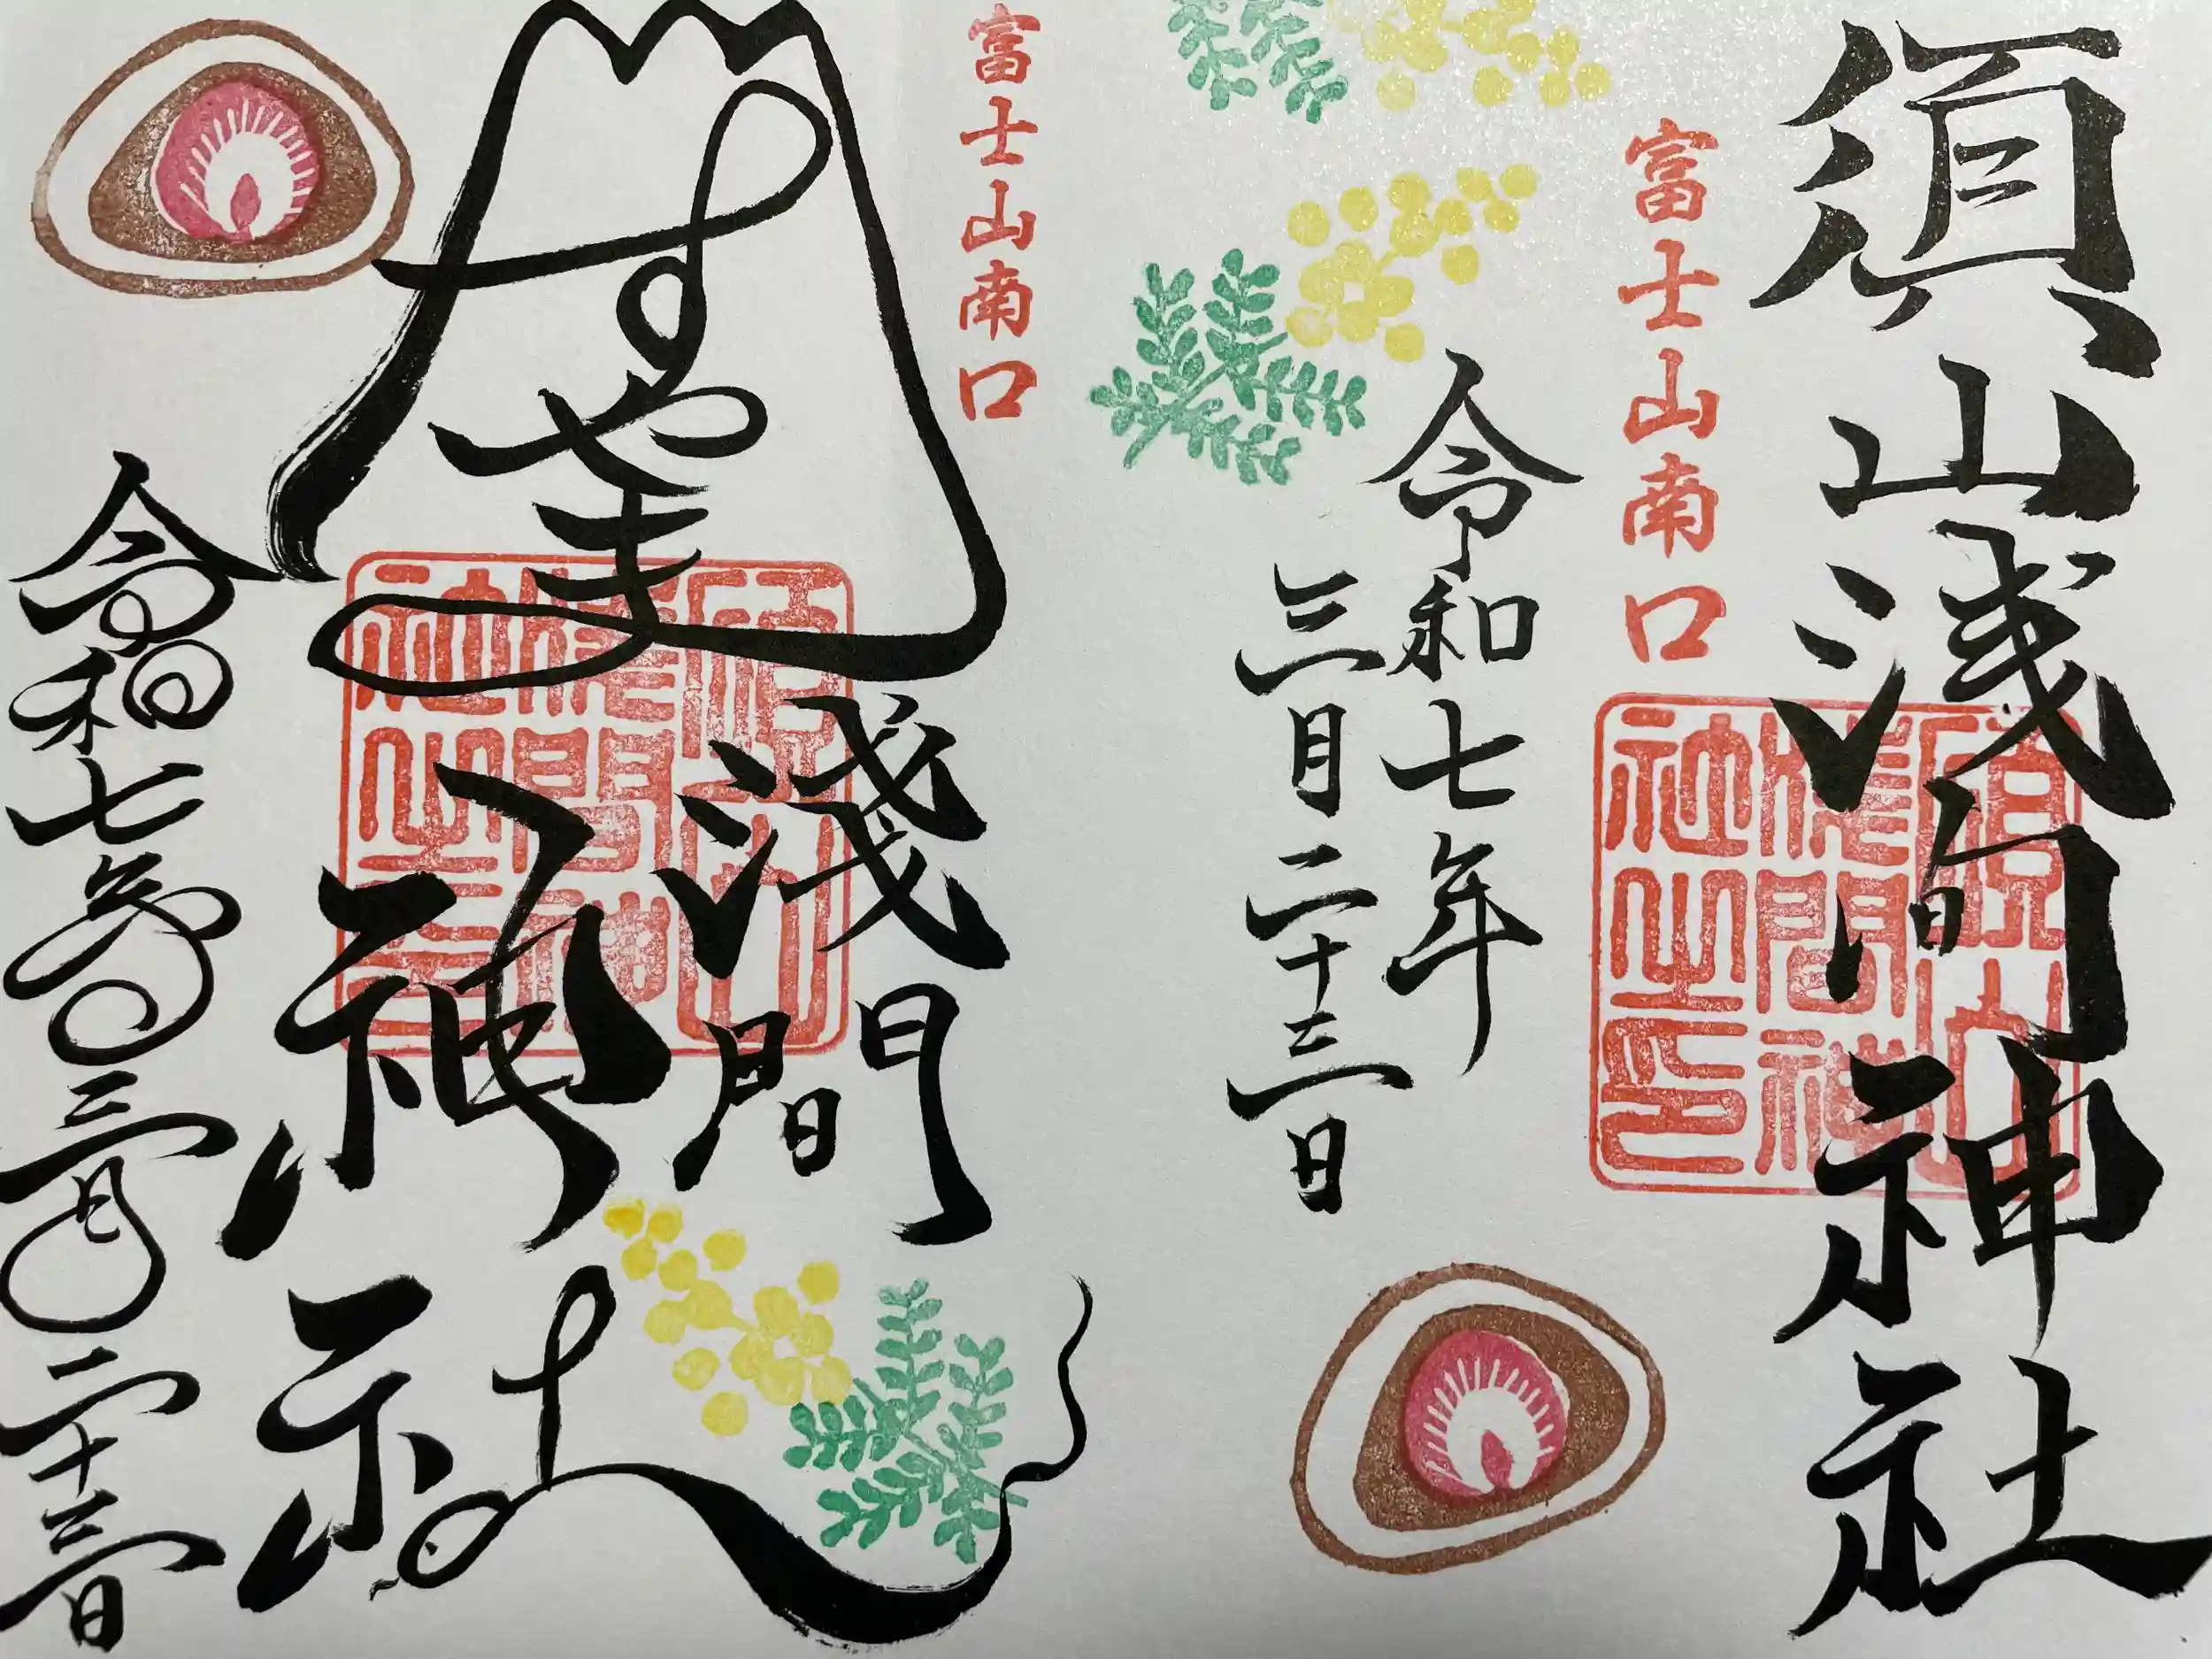 須山浅間神社
富士山南口
須山浅間神社之印
令和七年
三月二十三日
富士山南口
すやま
淺間
神社
令和七年三月二十三日